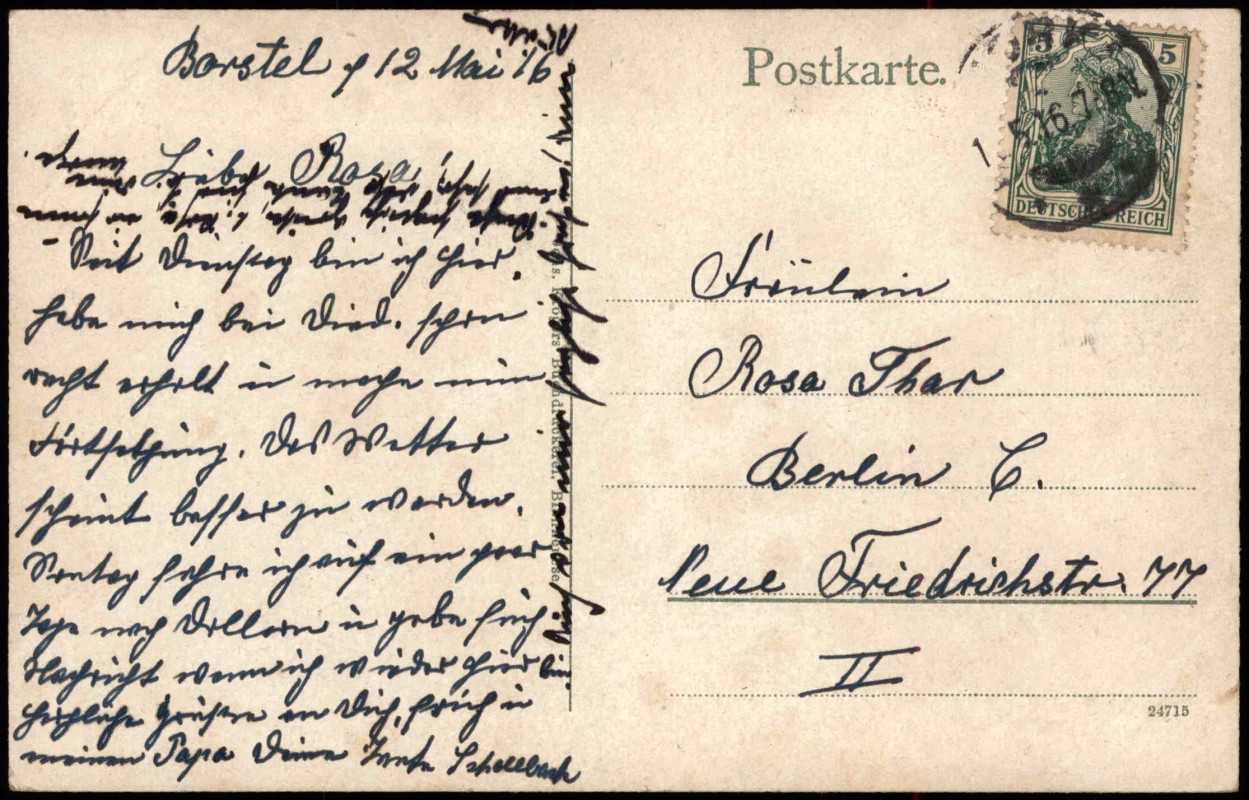 Borstel d 12 Mai 16
Liebe Rosa!
Seit Dienstag bin ich hier,
habe mich bei Died. schon
recht erholt u mache nun
Fortsetzung. Das Wetter
scheint besser zu werden.
Sontag fahre ich auf ein paar
Tage nach Döllern u gebe Euch
Nachricht wenn ich wieder hier bin.
herzliche Grüße an Dich, Erich u
meinen Papa Deine Tante Schellback
Postkarte.
5 5
DEUTSCHES REICH
16.7-8N
Fräulein
Rosa Thar
Berlin C.
Neue Friedrichstr. 77
II
24715